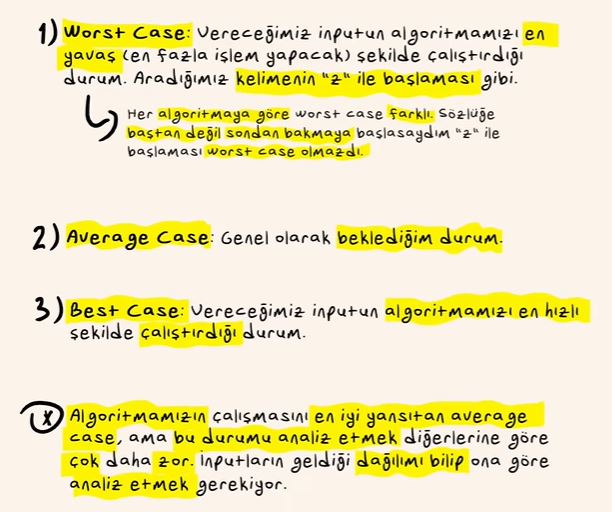 1) Worst Case: Vereceğimiz inputun algoritmamızı en
yavaş (en fazla işlem yapacak) şekilde çalıştırdığı
durum. Aradığımız kelimenin "z" ile başlaması gibi.
Her algoritmaya göre worst case farklı. Sözlüğe
baştan değil sondan bakmaya başlasaydım "z" ile
başlaması worst case olmazdı.
2) Average Case: Genel olarak beklediğim durum.
3) Best Case: Vereceğimiz inputun algoritmamızı en hızlı
şekilde çalıştırdığı durum.
* Algoritmamızın çalışmasını en iyi yansıtan average
case, ama bu durumu analiz etmek diğerlerine göre
çok daha zor. İnputların geldiği dağılımı bilip ona göre
analiz etmek gerekiyor.